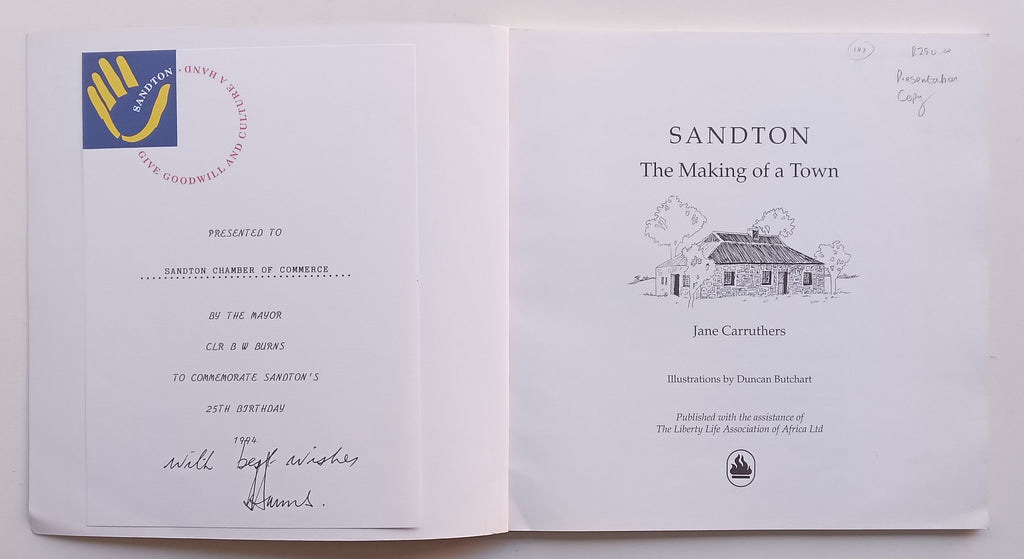 SANDTON
GIVE GOODWILL AND CULTURE A HAND ·
PRESENTED TO
SANDTON CHAMBER OF COMMERCE
BY THE MAYOR
CLR B W BURNS
TO COMMEMORATE SANDTON'S
25TH BIRTHDAY
1994
with best wishes
Presentation
Copy
SANDTON
The Making of a Town
Jane Carruthers
Illustrations by Duncan Butchart
Published with the assistance of
The Liberty Life Association of Africa Ltd